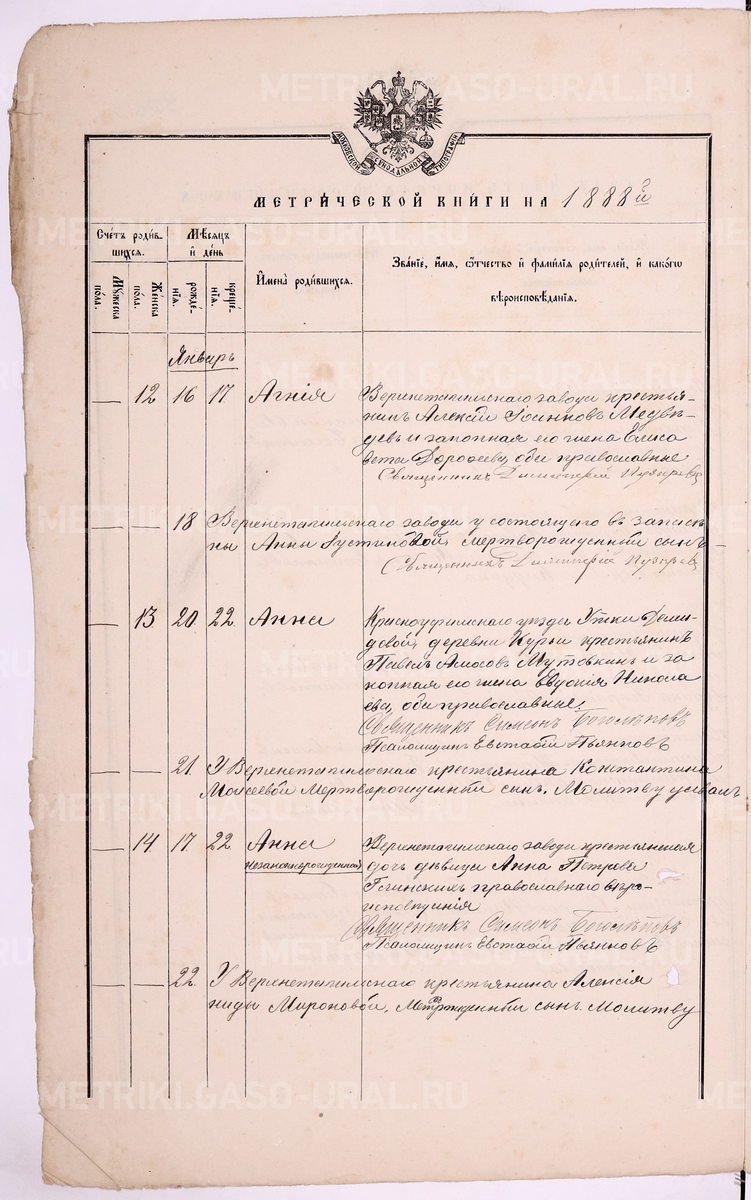 МОСКОВСКОЙ СѴНОДАЛЬНОЙ ТИПОГРАФІИ
МЕТРИЧЕСКОЙ КНИГИ НА 1888 й
Счетъ родив-
шихся.
Мѣсяцъ
и день
Имена родившихся.
Званіе, имя, отчество и фамилія родителей, и какого
вѣроисповѣданія.
Мужеска
пола.
Женска
пола.
рожде-
нія.
креще-
нія.
Январь
— 12 16 17 Агнія
Верхнетагильскаго завода крестья-
нинъ Алексій Іоанновъ Медвѣ-
девъ и законная его жена Елиса
вета Дорофеева, оба православные
Священникъ Димитрій Пузырев
— — 18 Верхнетагильскаго завода у состоящаго въ запасѣ
ны Анны мертворожденный сынъ
Священникъ Димитрій Пузырев
— 13 20 22 Анна
Красноуфимскаго уѣзда Утки Деми-
довой, деревни Курьи крестьянинъ
Павелъ Амосовъ Мутовкинъ и за
конная его жена Евдокія Никола
ева, оба православные.
Священникъ Симеонъ Боголѣповъ
Псаломщикъ Евстафій Пьянковъ
— — 21 У Верхнетагильскаго крестьянина Константина
Моисеевой Мертворожденный сынъ. Молитву
— 14 17 22 Анна
незаконнорожденная
Верхнетагильскаго завода крестьянская
дочь дѣвица Анна Петрова
православнаго вѣро-
исповѣданія
Священникъ Симеонъ Боголѣповъ
Псаломщикъ Евстафій Пьянковъ
— — 22 У Верхнетагильскаго крестьянина Алексія
Мироновой, сынъ. Молитву